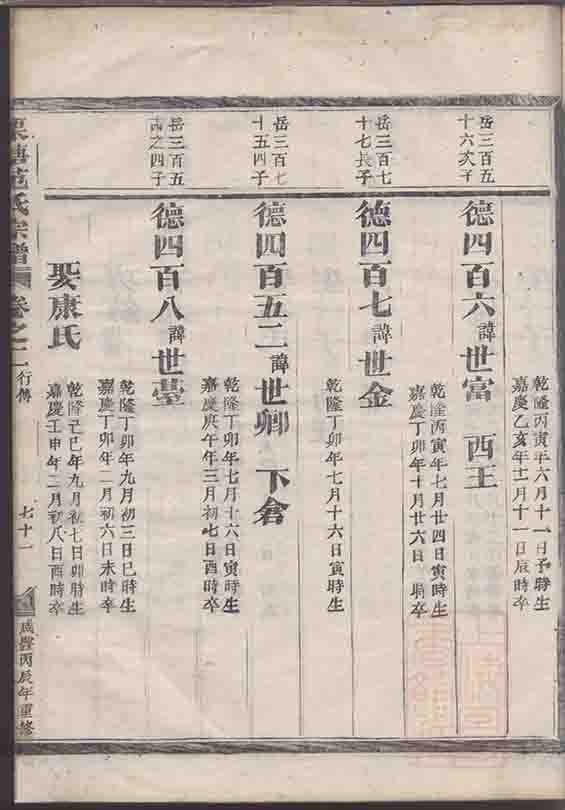 乾隆丙寅年六月十一日子時生
嘉慶乙亥年十一月十一日辰時卒
岳三百五
十六次子
德四百六諱世富 西王
乾隆丙寅年七月廿四日寅時生
嘉慶丁卯年十月廿六日 時卒
岳三百七
十七長子
德四百七諱世金
乾隆丁卯年七月十六日寅時生
岳三百七
十五四子
德四百五二諱世卿 下倉
乾隆丁卯年七月十六日寅時生
嘉慶庚午年三月初七日酉時卒
岳三百五
之四子
德四百八諱世臺
乾隆丁卯年九月初三日巳時生
嘉慶丁卯年二月初六日未時卒
娶康氏
乾隆己巳年九月初七日卯時生
嘉慶壬申年二月初八日酉時卒
范氏宗譜 卷之一 行傳 七十一 咸豐丙辰年重修